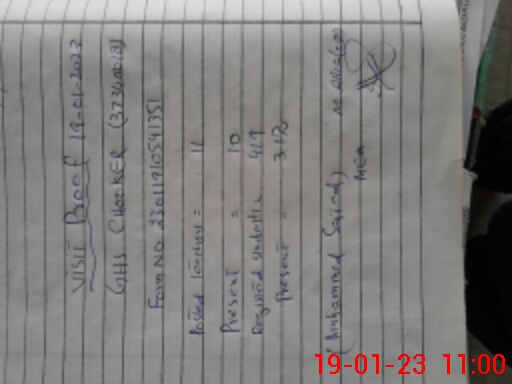 Visit Proof 19-01-2023
GHS CHOOKER (37340018)
Form No 230119105 41351
Posted teachers = 11
Present = 10
Registered students = 419
Present = 312
(Muhammad Saeed)
MEA
19-01-23 11:00